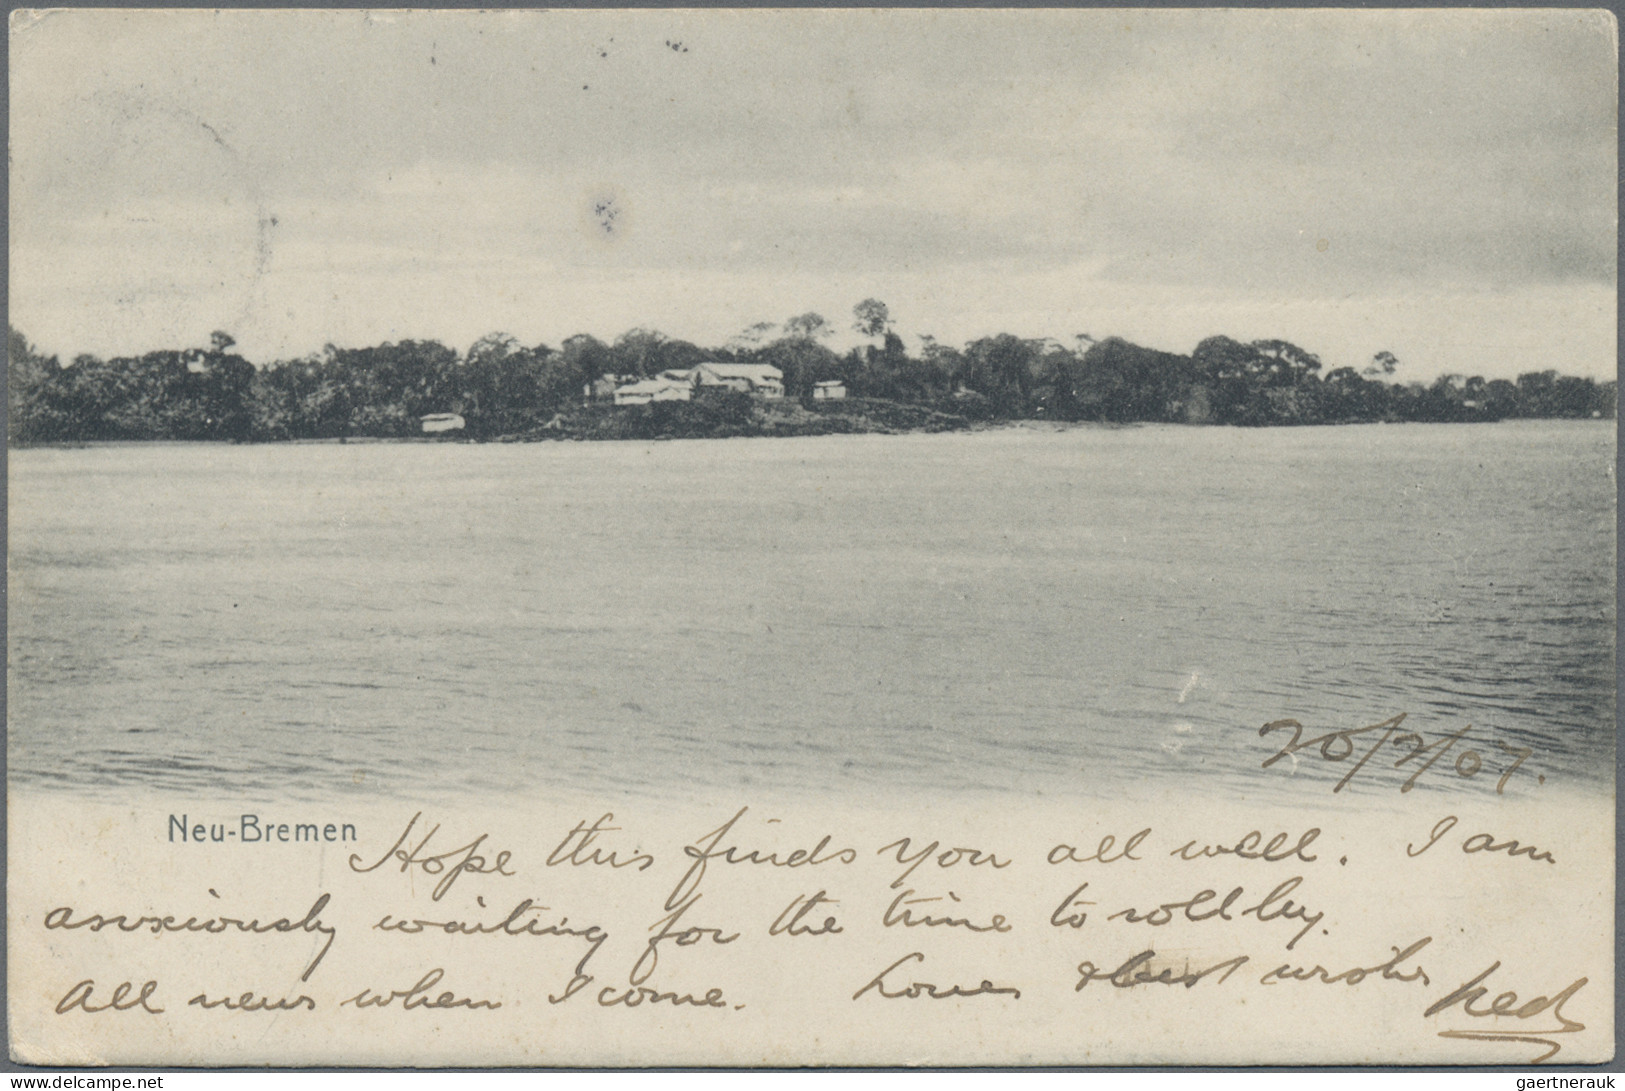 20/2/07.
Neu-Bremen
Hope this finds you all well. I am
anxiously waiting for the time to roll by.
All news when I come. Love & best wishes
Ned
www.delcampe.net
gaertnerauk